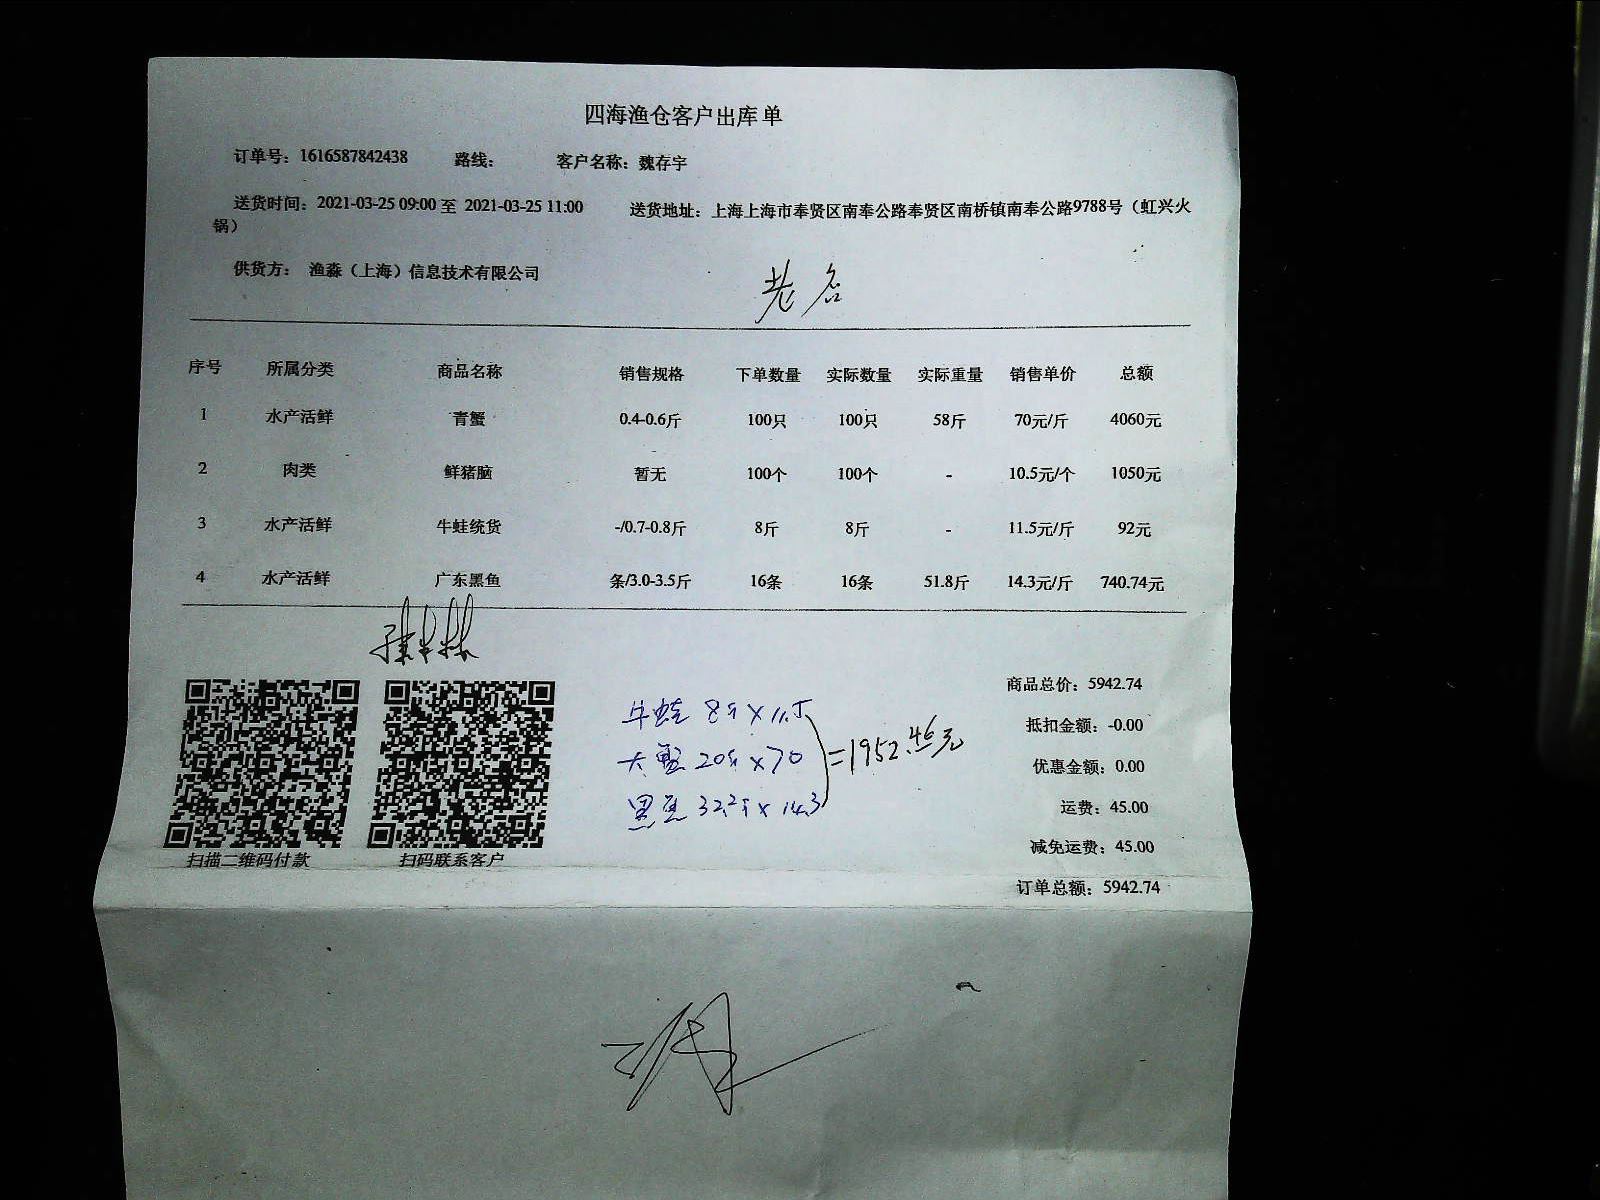 四海渔仓客户出库单
订单号：1616587842438 路线： 客户名称：魏存宇
送货时间：2021-03-25 09:00 至 2021-03-25 11:00 送货地址：上海上海市奉贤区南奉公路奉贤区南桥镇南奉公路9788号（虹兴火
锅）
供货方： 渔淼（上海）信息技术有限公司
序号 所属分类 商品名称 销售规格 下单数量 实际数量 实际重量 销售单价 总额
1 水产活鲜 青蟹 0.4-0.6斤 100只 100只 58斤 70元/斤 4060元
2 肉类 鲜猪脑 暂无 100个 100个 - 10.5元/个 1050元
3 水产活鲜 牛蛙统货 -/0.7-0.8斤 8斤 8斤 - 11.5元/斤 92元
4 水产活鲜 广东黑鱼 条/3.0-3.5斤 16条 16条 51.8斤 14.3元/斤 740.74元
牛蛙 8斤×11.5
大蟹 20斤×70 =1952.46元
黑鱼 32.2斤×14.3
扫描二维码付款 扫码联系客户
商品总价：5942.74
抵扣金额：-0.00
优惠金额：0.00
运费：45.00
减免运费：45.00
订单总额：5942.74